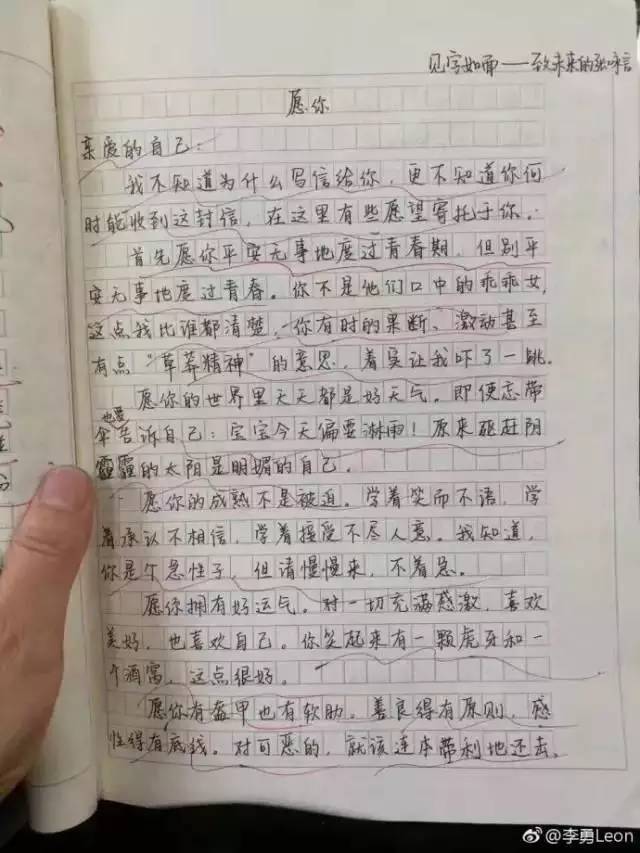 见字如面——致未来的张咏言
愿你
亲爱的自己：
我不知道为什么写信给你，更不知道你何
时能收到这封信，在这里有些愿望寄托于你。
首先愿你平安无事地度过青春期，但别平
安无事地度过青春。你不是他们口中的乖乖女，
这点我比谁都清楚，你有时的果断、激动甚至
有点“草莽精神”的意思，着实让我吓了一跳。
愿你的世界里天天都是好天气。即便忘带
也要
伞告诉自己：宝宝今天偏要淋雨！原来驱赶阴
霾的太阳是明媚的自己。
愿你的成熟不是被迫。学着笑而不语，学
着承认不相信，学着接受不尽人意。我知道，
你是个急性子，但请慢慢来，不着急。
愿你拥有好运气。对一切充满感激，喜欢
美好，也喜欢自己。你笑起来有一颗虎牙和一
个酒窝，这点很好。
愿你有盔甲也有软肋。善良得有原则，感
性得有底线。对可恶的，就该连本带利地还去。
@李勇Leon